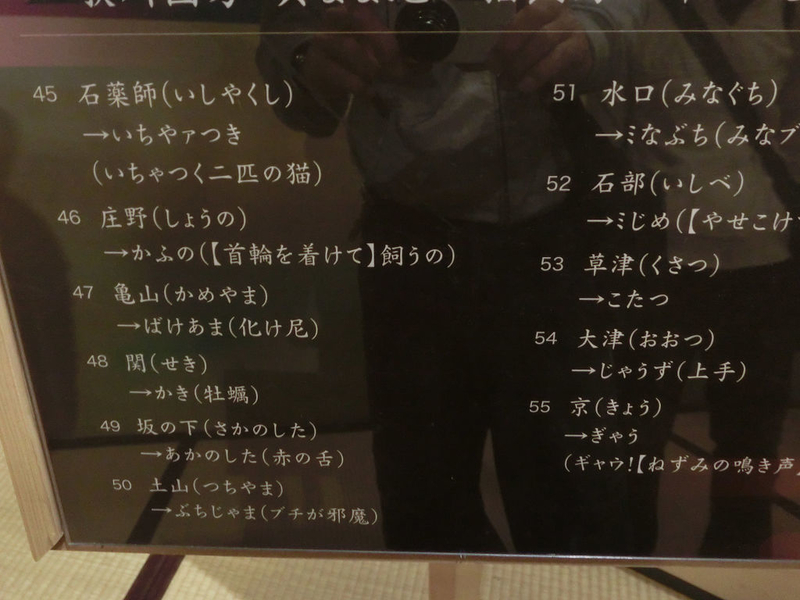 45 石薬師(いしやくし)
→いちやァつき
(いちゃつく二匹の猫)
46 庄野(しょうの)
→かふの(【首輪を着けて】飼うの)
47 亀山(かめやま)
→ばけあま(化け尼)
48 関(せき)
→かき(牡蠣)
49 坂の下(さかのした)
→あかのした(赤の舌)
50 土山(つちやま)
→ぶちじゃま(ブチが邪魔)
51 水口(みなぐち)
→ミなぶち(みなブ
52 石部(いしべ)
→ミじめ(【やせこけ
53 草津(くさつ)
→こたつ
54 大津(おおつ)
→じゃうず(上手)
55 京(きょう)
→ぎゃう
(ギャウ!【ねずみの鳴き声